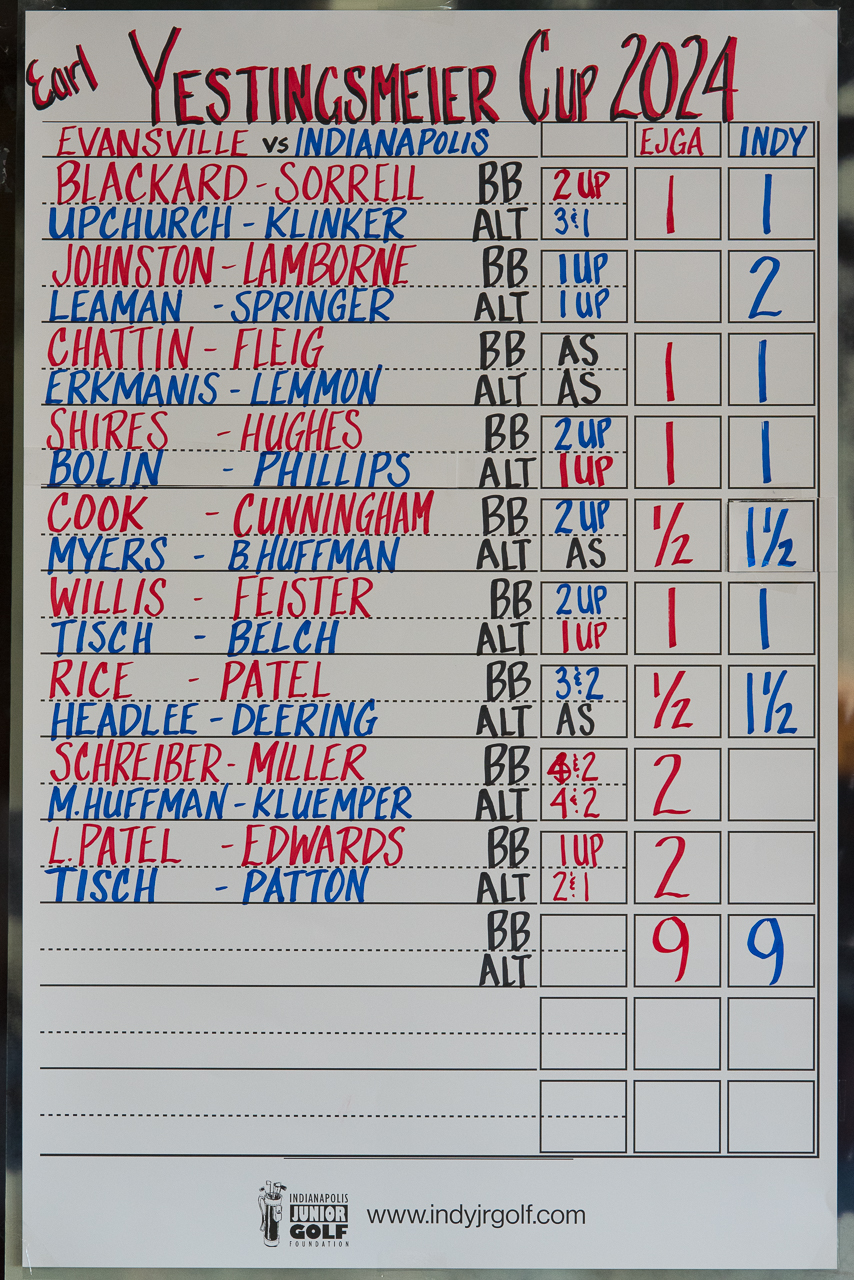 Earl YESTINGSMEIER CUP 2024
EVANSVILLE VS INDIANAPOLIS EJGA INDY
BLACKARD - SORRELL BB 2 UP 1 1
UPCHURCH - KLINKER ALT 3&1
JOHNSTON - LAMBORNE BB 1 UP 2
LEAMAN - SPRINGER ALT 1 UP
CHATTIN - FLEIG BB AS 1 1
ERKMANIS - LEMMON ALT AS
SHIRES - HUGHES BB 2 UP 1 1
BOLIN - PHILLIPS ALT 1 UP
COOK - CUNNINGHAM BB 2 UP 1/2 1 1/2
MYERS - B.HUFFMAN ALT AS
WILLIS - FEISTER BB 2 UP 1 1
TISCH - BELCH ALT 1 UP
RICE - PATEL BB 3&2 1/2 1 1/2
HEADLEE - DEERING ALT AS
SCHREIBER - MILLER BB 4&2 2
M.HUFFMAN - KLUEMPER ALT 4&2
L.PATEL - EDWARDS BB 1 UP 2
TISCH - PATTON ALT 2&1
BB 9 9
ALT
INDIANAPOLIS
JUNIOR
GOLF
FOUNDATION
www.indyjrgolf.com